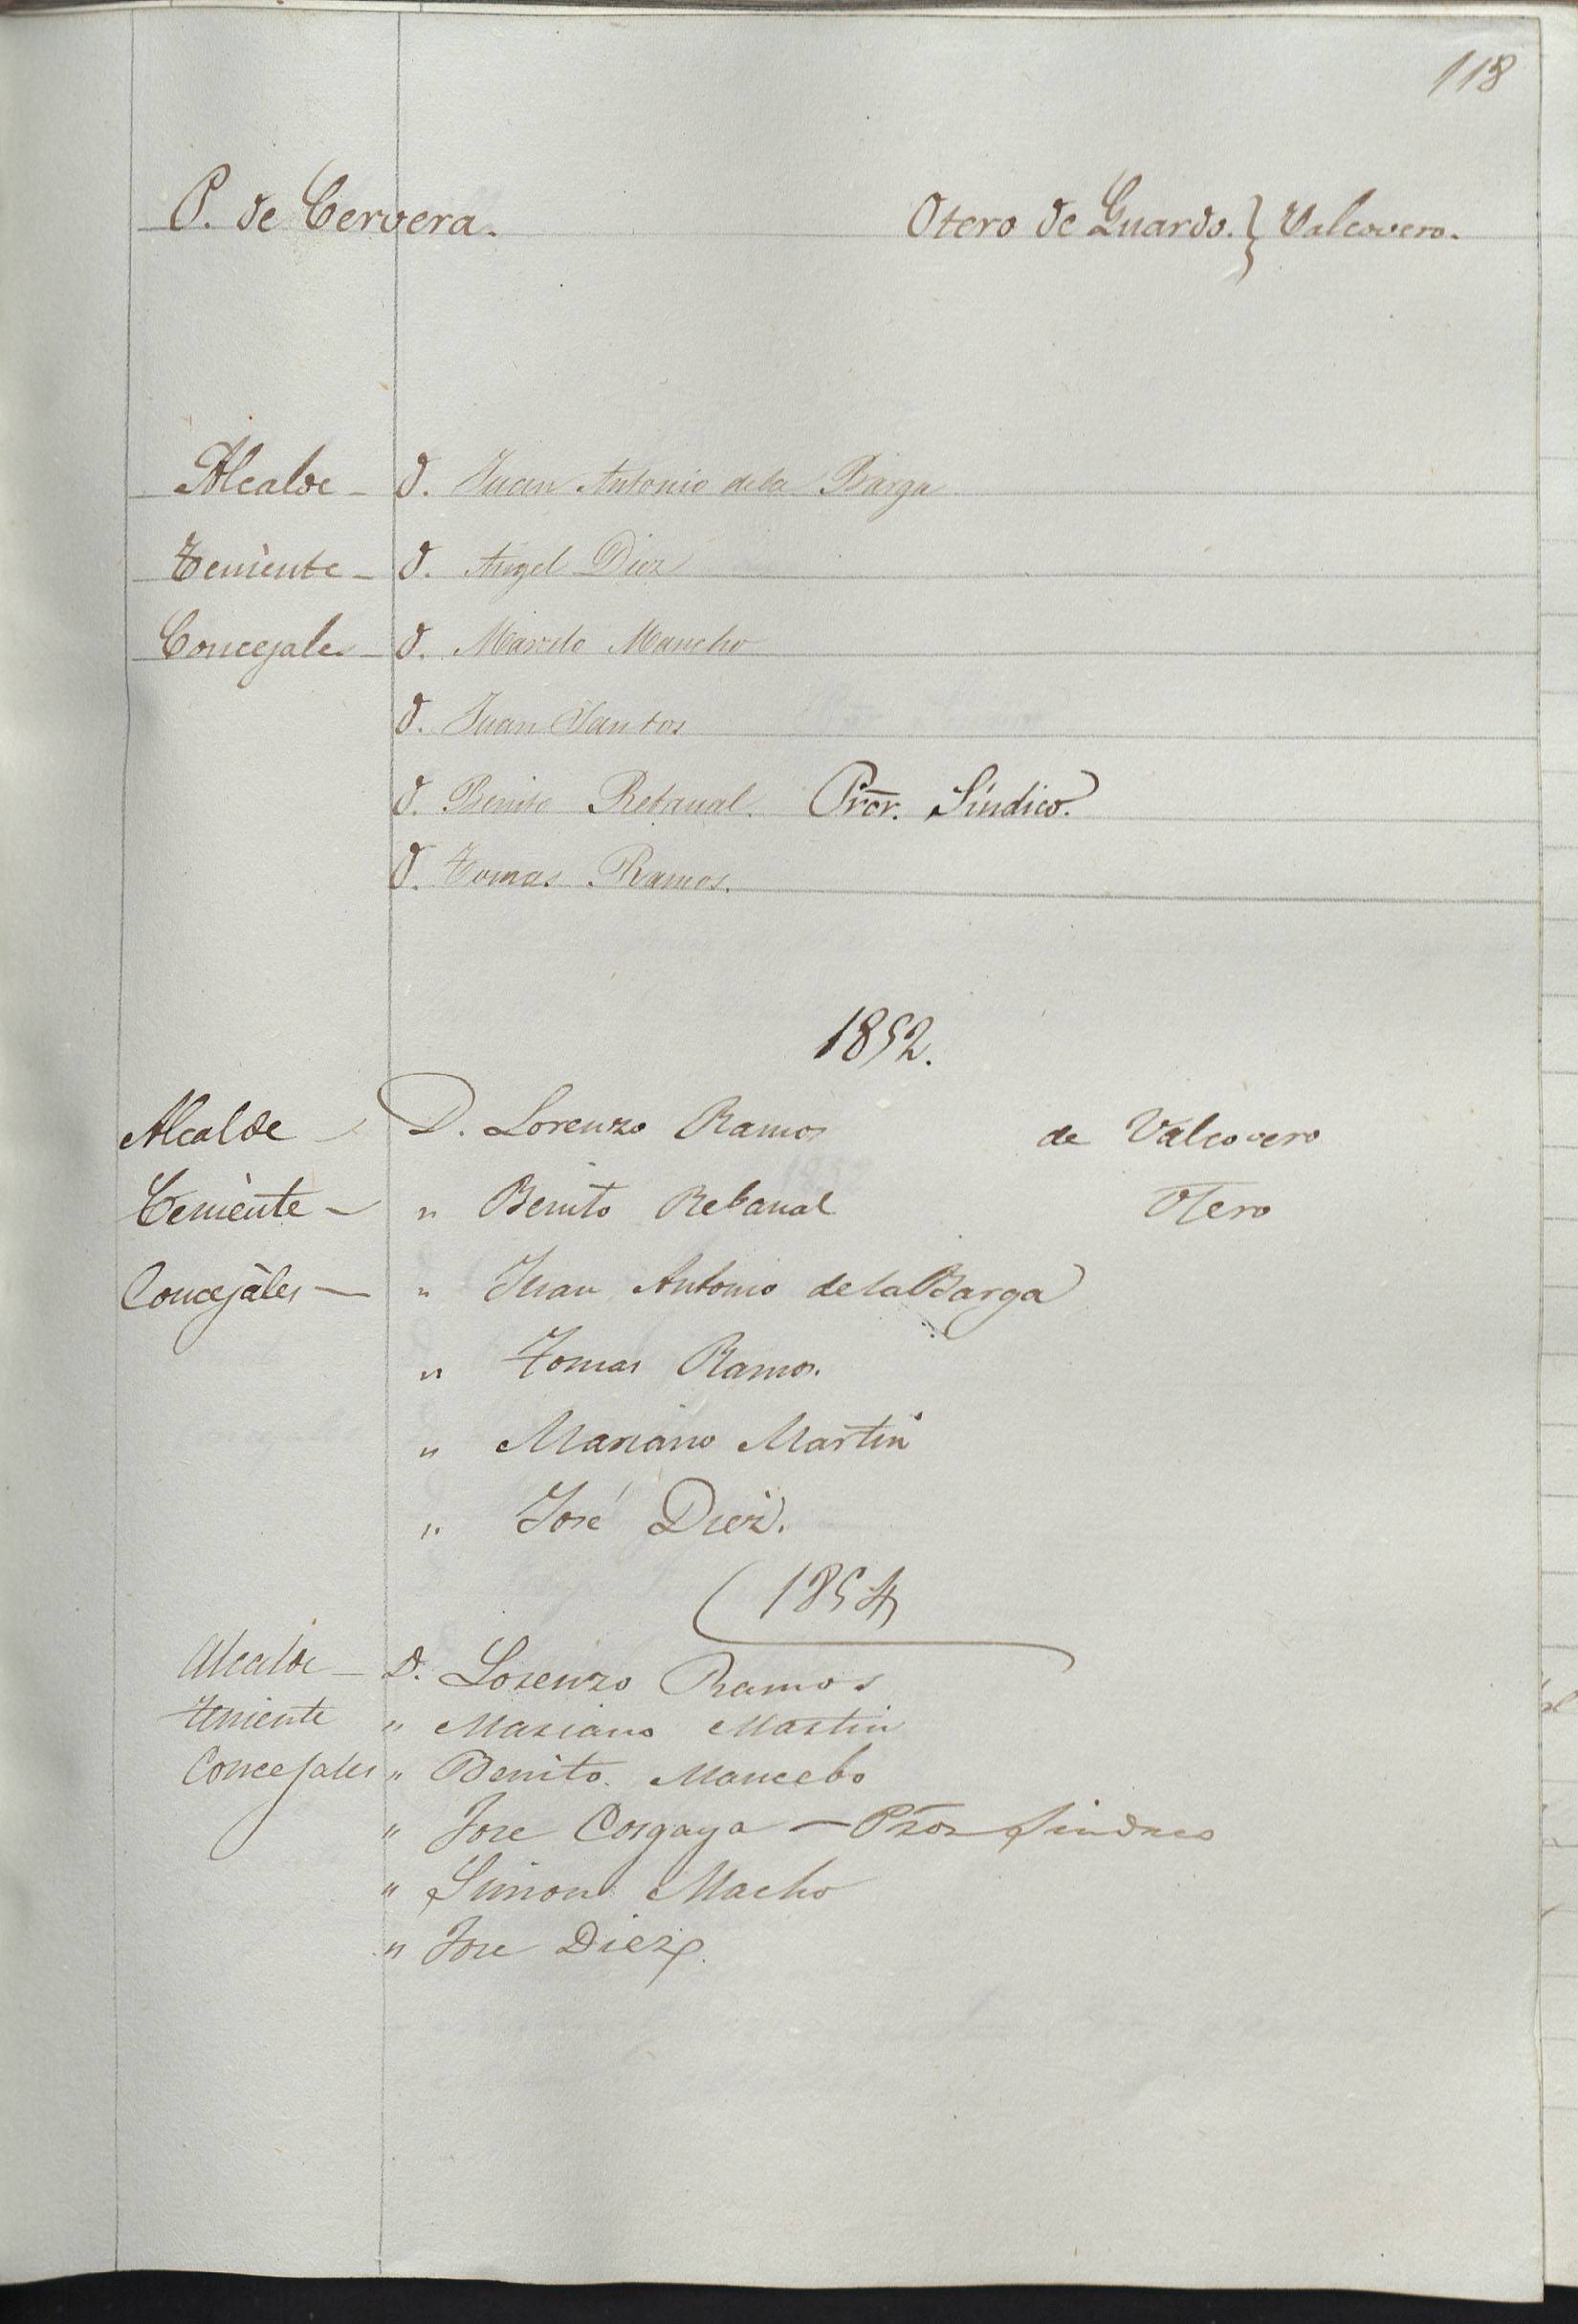 118
P. de Cervera. Otero de Guardo. } Valcovero.
Alcalde - D. Juan Antonio de la Barga
Teniente - D. Angel Diez
Concejales - D. Marcelo Mancho
D. Juan Santos
D. Benito Rebanal. Pror. Síndico.
D. Tomas Ramos.
1852.
Alcalde - D. Lorenzo Ramos de Valcovero
Teniente - " Benito Rebanal Otero
Concejales - " Juan Antonio de la Barga
" Tomas Ramos.
" Mariano Martin
" José Diez.
1854
Alcalde - D. Lorenzo Ramos
Teniente " Mariano Martin
Concejales " Benito. Mancebo
" Jose Cosgaya - Pror Sindico
" Simon Macho
" Jose Diez.